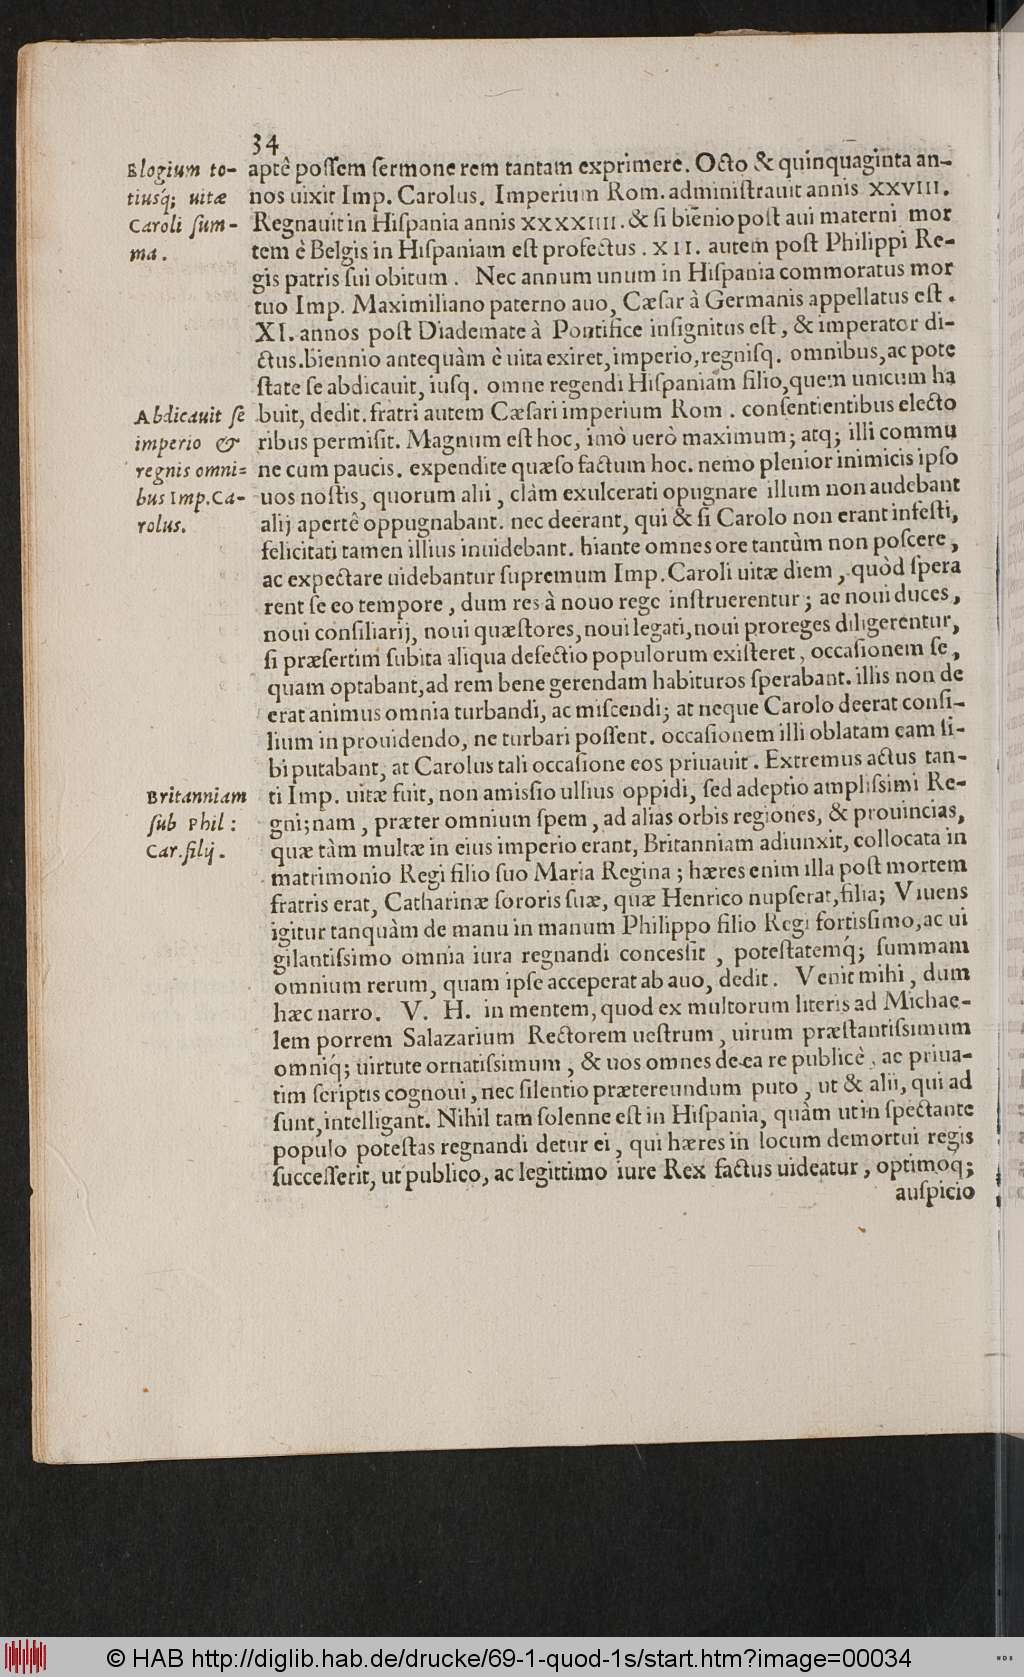 34
Elogium to-
tiusq́; uitæ
Caroli ſum-
ma.
aptê poſſem ſermone rem tantam exprimere. Octo & quinquaginta an-
nos uixit Imp. Carolus. Imperium Rom. adminiſtrauit annis XXVIII.
Regnauit in Hiſpania annis XXXXIIII. & ſi biẽnio poſt aui materni mor
tem è Belgis in Hiſpaniam eſt profectus. XII. autem poſt Philippi Re-
gis patris ſui obitum. Nec annum unum in Hiſpania commoratus mor
tuo Imp. Maximiliano paterno auo, Cæſar à Germanis appellatus eſt.
XI. annos poſt Diademate à Pontifice inſignitus eſt, & imperator di-
ctus. biennio antequàm è uita exiret, imperio, regniſq. omnibus, ac pote
ſtate ſe abdicauit, iuſq. omne regendi Hiſpaniam filio, quem unicum ha
Abdicauit ſe
imperio &
regnis omni-
bus Imp. Ca-
rolus.
buit, dedit. fratri autem Cæſari imperium Rom. conſentientibus electo
ribus permiſit. Magnum eſt hoc, imò uerò maximum; atq; illi commu
ne cum paucis. expendite quæſo factum hoc. nemo plenior inimicis ipſo
uos noſtis, quorum alii, clàm exulcerati opugnare illum non audebant
alij apertê oppugnabant. nec deerant, qui & ſi Carolo non erant infeſti,
felicitati tamen illius inuidebant. hiante omnes ore tantùm non poſcere,
ac expectare uidebantur ſupremum Imp. Caroli uitæ diem, quòd ſpera
rent ſe eo tempore, dum res à nouo rege inſtruerentur; ac noui duces,
noui conſiliarij, noui quæſtores, noui legati, noui proreges diligerentur,
ſi præſertim ſubita aliqua defectio populorum exiſteret, occaſionem ſe,
quam optabant, ad rem bene gerendam habituros ſperabant. illis non de
erat animus omnia turbandi, ac miſcendi; at neque Carolo deerat conſi-
lium in prouidendo, ne turbari poſſent. occaſionem illi oblatam eam ſi-
bi putabant, at Carolus tali occaſione eos priuauit. Extremus actus tan-
Britanniam
ſub Phil:
Car. filij.
ti Imp. uitæ fuit, non amiſſio ullius oppidi, ſed adeptio ampliſsimi Re-
gni; nam, præter omnium ſpem, ad alias orbis regiones, & prouincias,
quæ tàm multæ in eius imperio erant, Britanniam adiunxit, collocata in
matrimonio Regi filio ſuo Maria Regina; hæres enim illa poſt mortem
fratris erat, Catharinæ ſororis ſuæ, quæ Henrico nupſerat, filia; Viuens
igitur tanquàm de manu in manum Philippo filio Regi fortiſsimo, ac ui
gilantiſsimo omnia iura regnandi conceſsit, poteſtatemq́; ſummam
omnium rerum, quam ipſe acceperat ab auo, dedit. Venit mihi, dum
hæc narro. V. H. in mentem, quod ex multorum literis ad Michae-
lem porrem Salazarium Rectorem ueſtrum, uirum præſtantiſsimum
omniq́; uirtute ornatiſsimum, & uos omnes de ea re publicè, ac priua-
tim ſcriptis cognoui, nec ſilentio prætereundum puto, ut & alii, qui ad
ſunt, intelligant. Nihil tam ſolenne eſt in Hiſpania, quàm ut in ſpectante
populo poteſtas regnandi detur ei, qui hæres in locum demortui regis
ſucceſſerit, ut publico, ac legittimo iure Rex factus uideatur, optimoq́;
auſpicio
© HAB http://diglib.hab.de/drucke/69-1-quod-1s/start.htm?image=00034